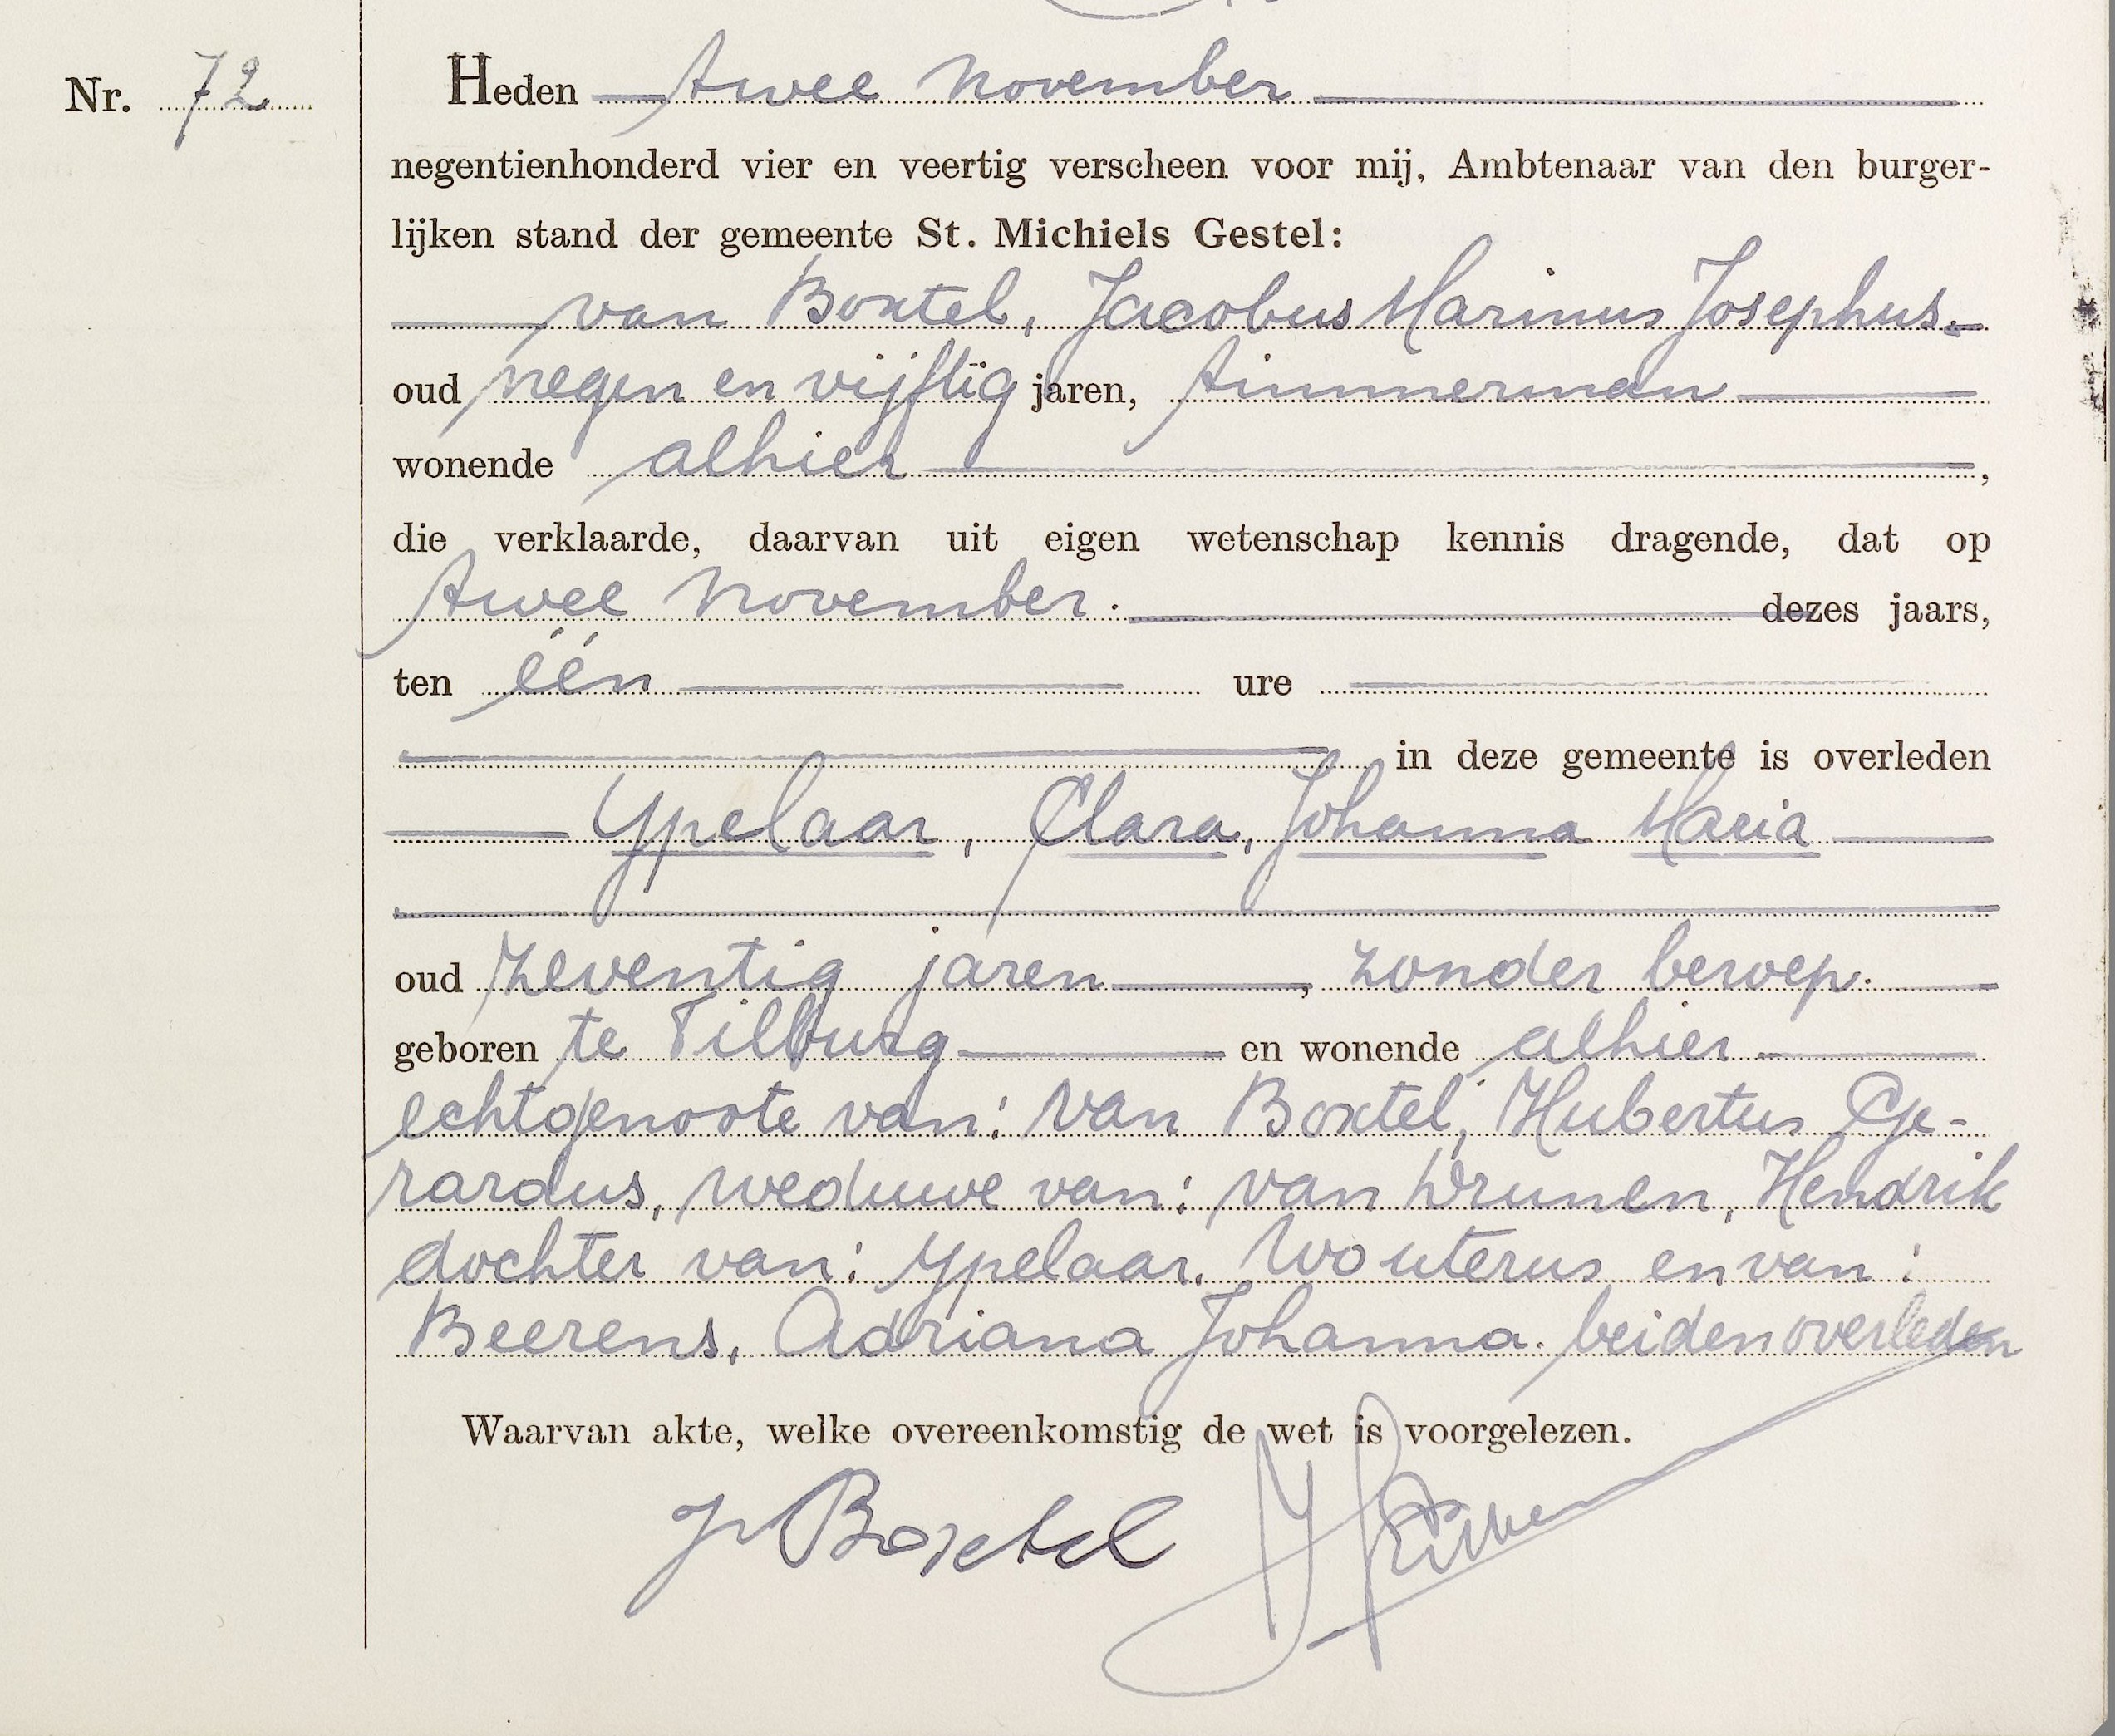 Nr. 72
Heden twee November
negentienhonderd vier en veertig verscheen voor mij, Ambtenaar van den burger-
lijken stand der gemeente St. Michiels Gestel:
van Boxtel, Jacobus Marinus Josephus.
oud negen en vijftig jaren, timmerman
wonende alhier ,
die verklaarde, daarvan uit eigen wetenschap kennis dragende, dat op
twee November. dezes jaars,
ten één ure
in deze gemeente is overleden
Ypelaar, Clara, Johanna Maria
oud zeventig jaren, zonder beroep.
geboren te Tilburg en wonende alhier
echtgenoote van: van Boxtel, Hubertus Ge-
rardus, weduwe van: van Drunen, Hendrik
dochter van: Ypelaar, Wouterus en van:
Beerens, Adriana Johanna. beiden overleden
Waarvan akte, welke overeenkomstig de wet is voorgelezen.
J v Boxtel